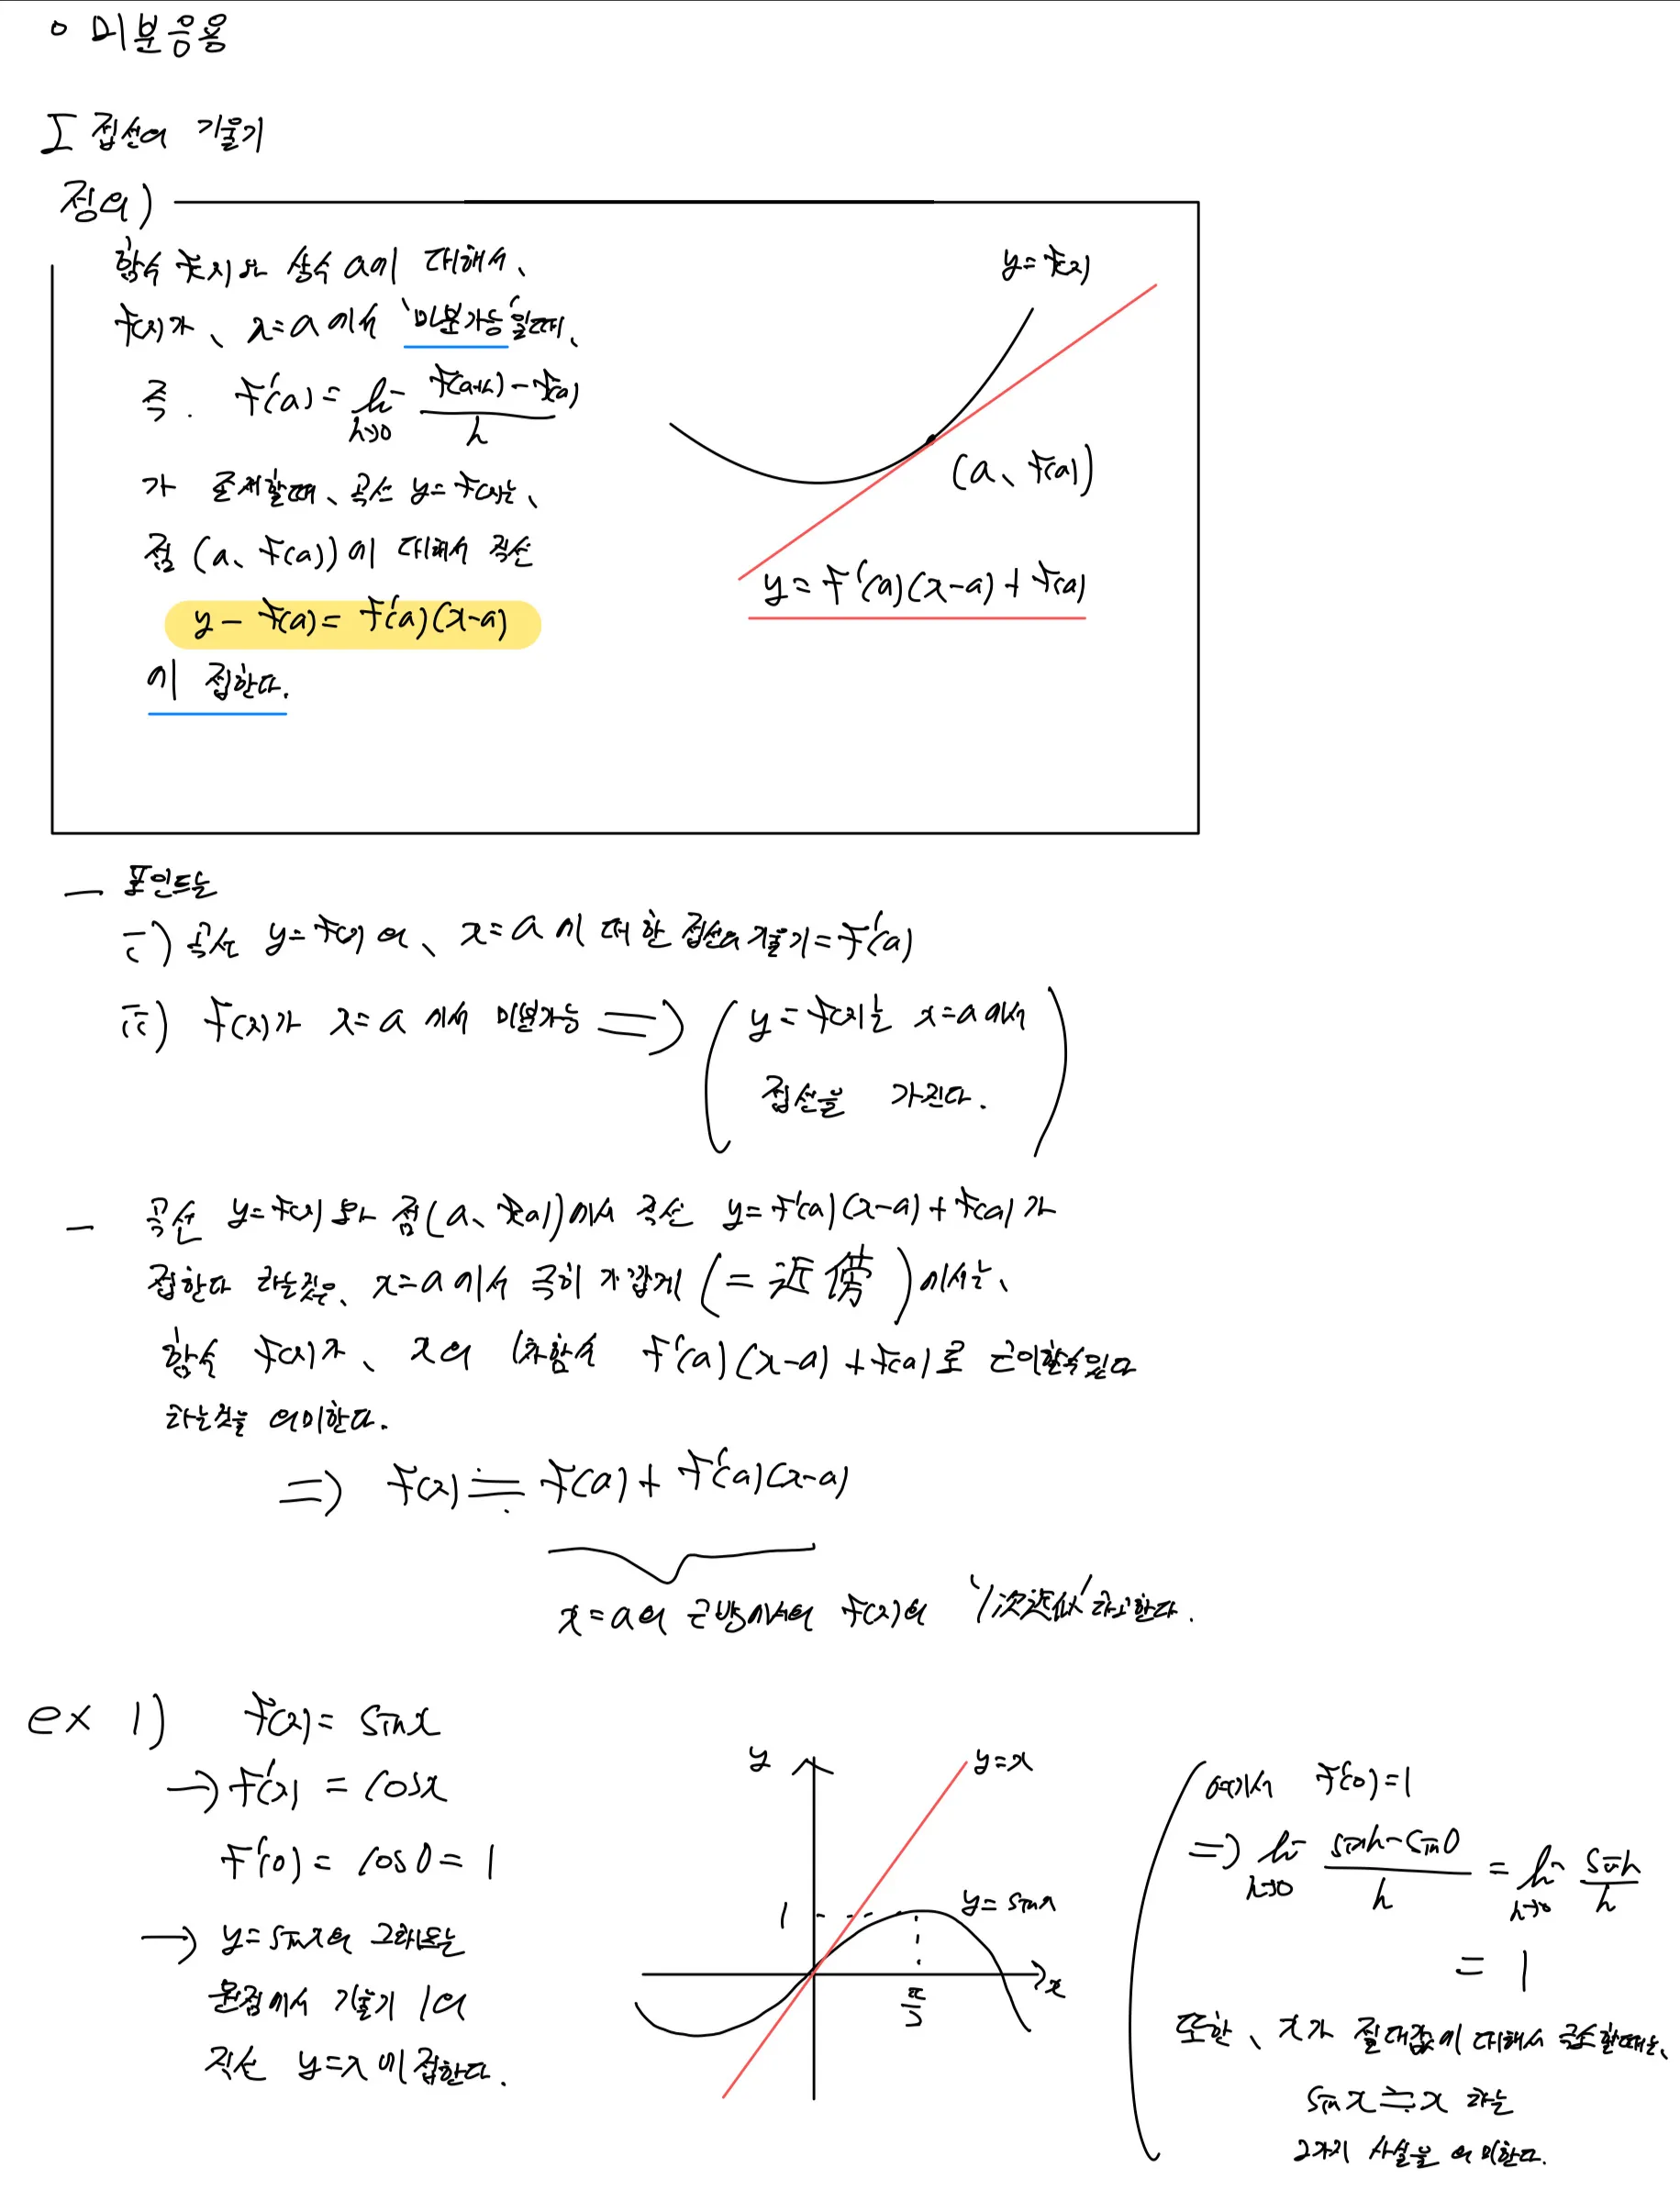 ○ 미분응용
I 접선의 기울기
정의)
함수 f(x)와 상수 a에 대해서、
f(x)가、x=a 에서 '미분가능'일때、
즉. f'(a) = lim h→0 f(a+h) - f(a) / h
가 존재할때、곡선 y=f(x)는、
점 (a、f(a))에 대해서 직선
y - f(a) = f'(a)(x-a)
에 접한다.
y = f(x)
(a、f(a))
y = f'(a)(x-a) + f(a)
— 포인트는
i) 곡선 y=f(x)의、x=a 에 대한 접선의 기울기 = f'(a)
ii) f(x)가 x=a 에서 미분가능 ⟹ ( y = f(x)는 x=a 에서
접선을 가진다. )
— 곡선 y=f(x)와 점(a、f(a))에서 직선 y=f'(a)(x-a)+f(a)가
접한다 라는것은、x=a 에서 극히 가깝게 (= 近傍)에서는、
함수 f(x)가、x의 1차함수 f'(a)(x-a)+f(a)로 근이할수있다
라는것을 의미한다.
⟹ f(x) ≒ f(a) + f'(a)(x-a)
x=a의 근방에서의 f(x)의 '1次近似'라고한다.
ex 1) f(x) = sin x
→ f'(x) = cos x
f'(0) = cos 0 = 1
→ y=sin x의 그래프는
원점에서 기울기 1의
직선 y=x에 접한다.
y
y=x
1
y=sin x
x
π/2
여기서 f'(0)=1
⟹ lim h→0 sin h - sin 0 / h = lim h→0 sin h / h
= 1
또한、x가 절대값에 대해서 극소할때는、
sin x ≒ x 라는
2가지 사실을 의미한다.